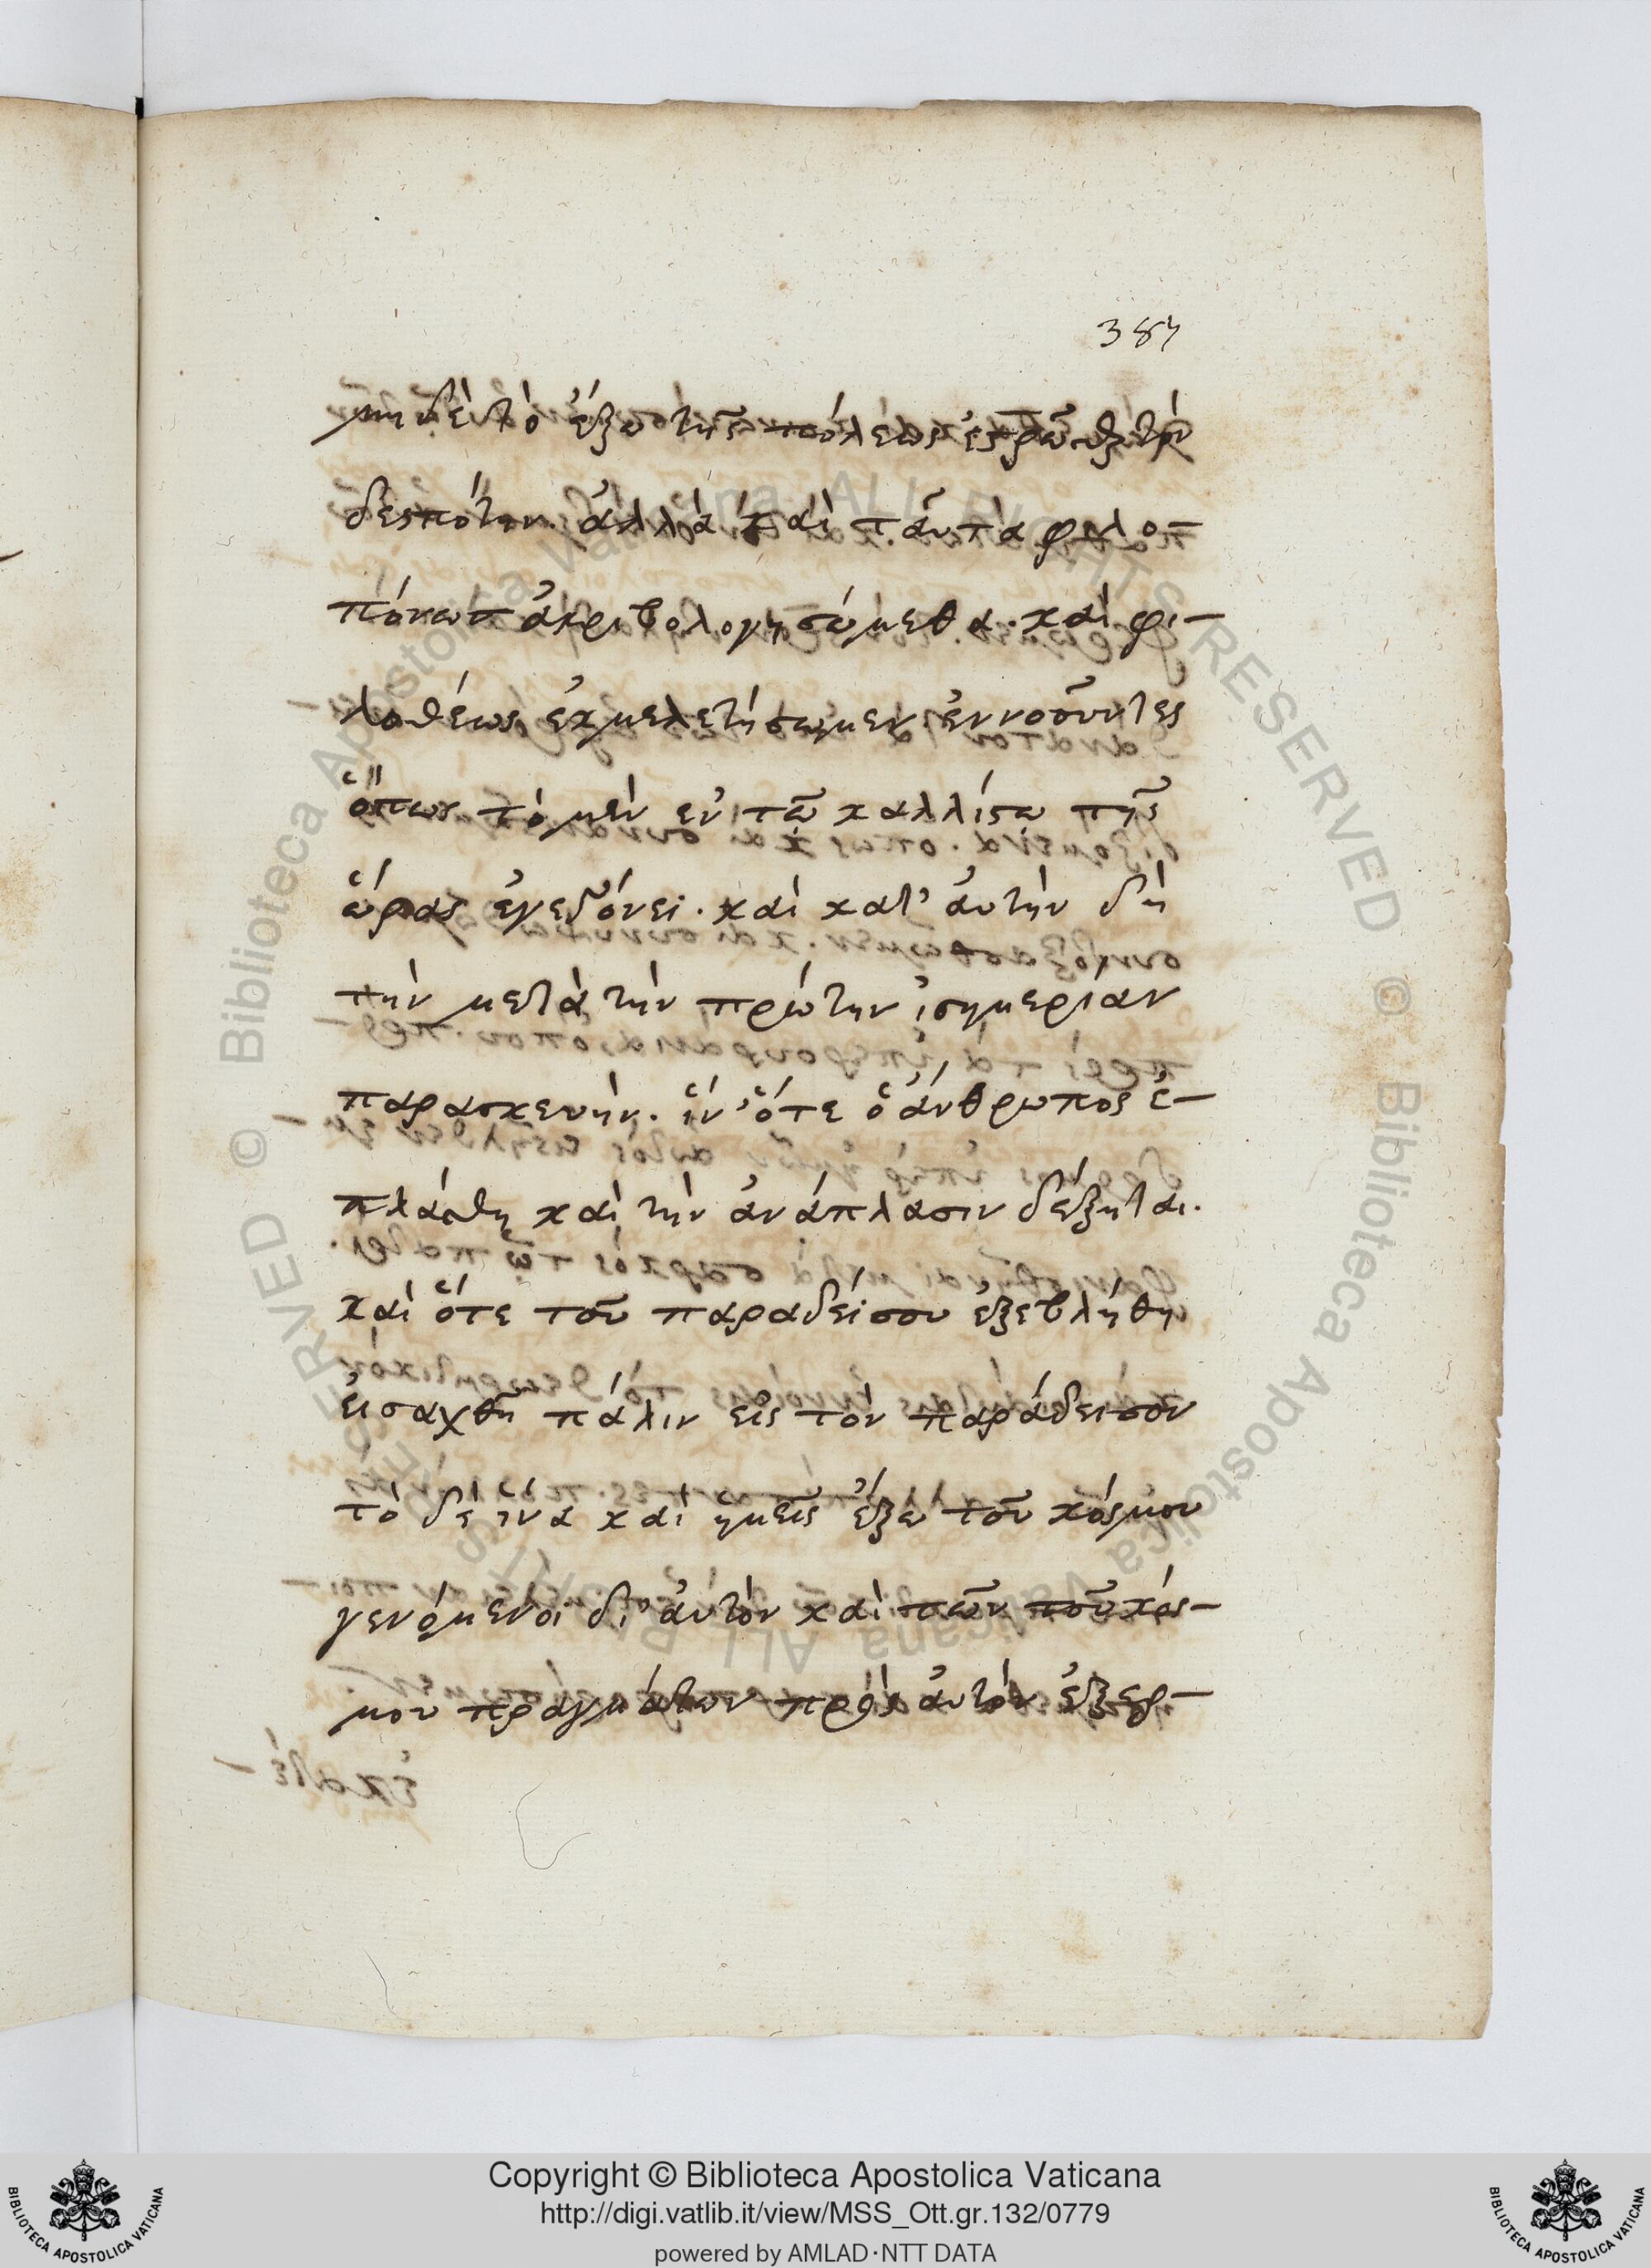 387
μηδὲ τὸ ἔξω τῆς πόλεως ἐσρῶσθαι τὸν
δεσπότην. ἀλλὰ καὶ ταῦτα φιλο-
πόνως ἀκριβολογησώμεθα. καὶ φι-
λοθέως ἐκμελετήσωμεν ἐννοοῦντες
ὅπως τὸ μὲν ἐν τῶ καλλίστω τῆς
ὥρας ἐγεγόνει. καὶ κατ' ἀυτὴν δὴ
τὴν μετὰ τὴν πρώτην ἰσημερίαν
παρασκευὴν. ἵν' ὅτε ὁ ἄνθρωπος ἐ-
πλάσθη καὶ τὴν ἀνάπλασιν δέξηται.
καὶ ὅτε τοῦ παραδείσου ἐξεβλήθη
ἐισαχθῆ πάλιν εἰς τὸν παράδεισον
τὸ δὲ ἵνα καὶ ἡμεῖς ἔξω τοῦ κόσμου
γενόμενοι δι' ἀυτὸν καὶ τῶν τοῦ κόσ-
μου πραγμάτων πρὸς ἀυτὸν ἐξερ-
Copyright © Biblioteca Apostolica Vaticana
http://digi.vatlib.it/view/MSS_Ott.gr.132/0779
powered by AMLAD·NTT DATA
BIBLIOTECA APOSTOLICA VATICANA
BIBLIOTECA APOSTOLICA VATICANA
© Biblioteca Apostolica Vaticana ALL RIGHTS RESERVED
© Biblioteca Apostolica Vaticana ALL RIGHTS RESERVED